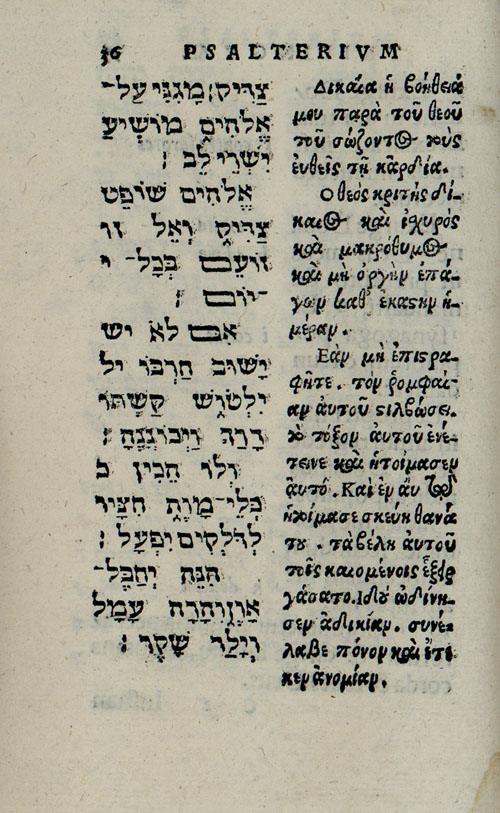 36 PSALTERIVM
צַדִּיק׃ מָגִנִּי עַל־
אֱלֹהִים מוֹשִׁיעַ
יִשְׁרֵי לֵב׃
אֱלֹהִים שׁוֹפֵט
צַדִּיק וְאֵל זו
זוֹעֵם בְּכָל־ י
־יוֹם׃
אִם לֹא יש
יָשׁוּב חַרְבּוֹ יל
יִלְטוֹשׁ קַשְׁתּוֹ
דָרַךְ וַיְכוֹנְנֶהָ׃
וְלוֹ הֵכִין כ
כְּלֵי־מָוֶת חִצָּיו
לְדֹלְקִים יִפְעָל׃
הִנֵּה יְחַבֶּל־
אָוֶן וְהָרָה עָמָל
וְיָלַד שָׁקֶר׃
Δικαία ἡ βοήθειά
μου παρὰ τοῦ θεοῦ
τοῦ σώζοντος τοὺς
ἐυθεῖς τῇ καρδία.
Ο θεὸς κριτὴς δί-
καιος καὶ ἰχυρὸς
καὶ μακρόθυμος
καὶ μὴ ὀργὴν ἐπά-
γων καθ' ἑκάστην ἡ-
μέραν.
Εὰν μὴ ἐπιστρα-
φῆτε. τὸν ῥομφαί-
αν ἀυτοῦ στιλβώσει.
τὸ τόξον ἀυτοῦ ἐνέ-
τεινε καὶ ἡτοίμασεν
ἀυτό. Καὶ ἐν ἀυτῷ
ἡτοίμασε σκεύη θανά
του. τὰ βέλη ἀυτοῦ
τοῖς καιομένοις ἐξειρ
γάσατο. Ιδοὺ ὠδίνη-
σεν ἀδικίαν. συνέ-
λαβε πόνον καὶ ἔτε
κεν ἀνομίαν.